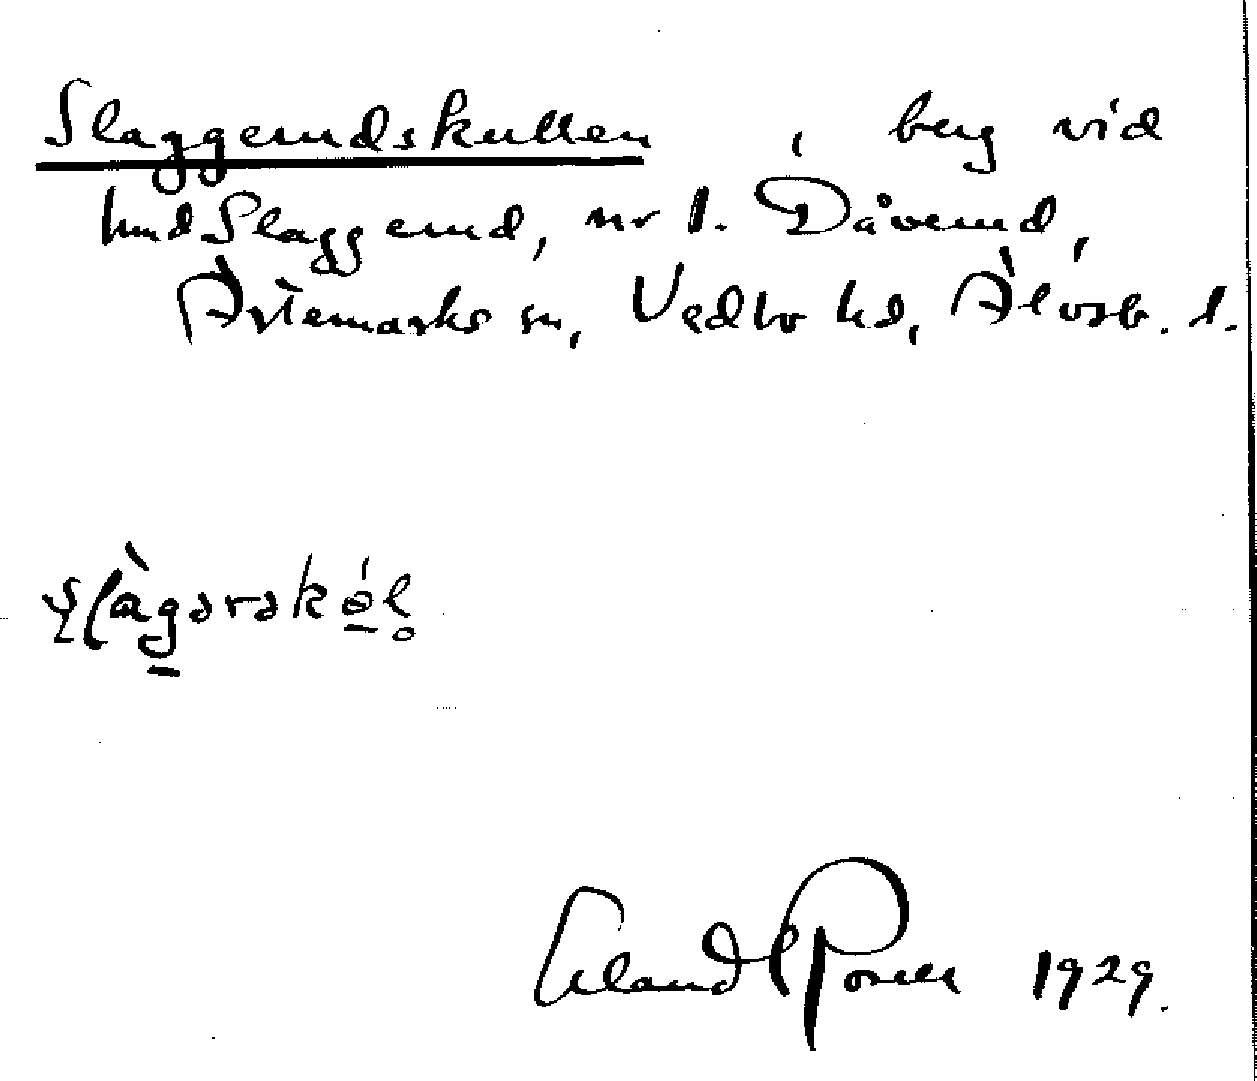 Slaggerudskullen, berg vid
hmd Slaggerud, nr 1. Dåverud,
Ärtemarks sn, Vedbo hd, Älvsb. l.
Erland Rosell 1929.